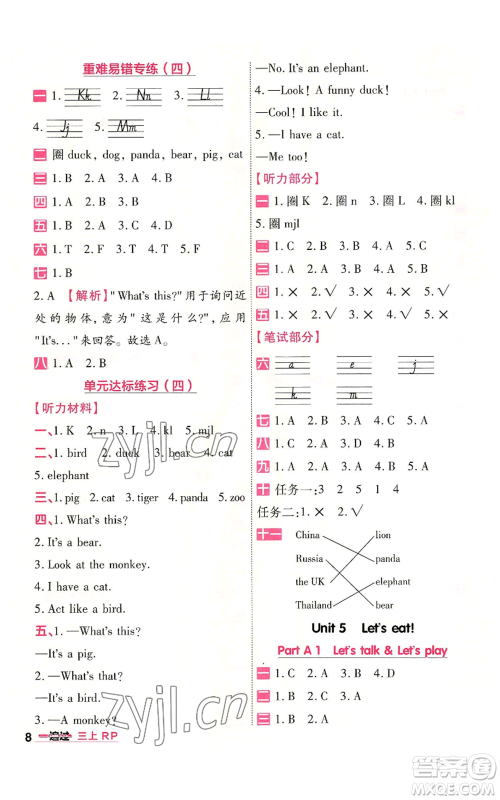 重难易错专练(四)
一 1. Kk 2. Nn 3. Ll
4. Jj 5. Mm
二 圈 duck, dog, panda, bear, pig, cat
三 1. B 2. A 3. B 4. B 5. A
四 1. A 2. B 3. A 4. C 5. D
五 1. B 2. A 3. A 4. B
六 1. T 2. F 3. F 4. T 5. F
七 1. B
2. A 【解析】"What's this?"用于询问近
处的物体,意为"这是什么?",应用
It's..."来回答。故选A。
八 1. A 2. B
单元达标练习(四)
【听力材料】
一、1. K 2. n 3. L 4. kl 5. mjl
二、1. bird 2. duck 3. bear 4. cat
5. elephant
三、1. pig 2. cat 3. tiger 4. panda 5. zoo
四、1. What's this?
2. It's a bear.
3. Look at the monkey.
4. I have a cat.
5. Act like a bird.
五、1. —What's this?
—It's a pig.
2. —What's this?
—It's a bird.
3. —A monkey?
8 一遍过 三上RP
—No. It's an elephant.
4. —Look! A funny duck!
—Cool! I like it.
5. —I have a cat.
—Me too!
【听力部分】
一 1. 圈 K 2. 圈 n 3. 圈 L 4. 圈 kl
5. 圈 mjl
二 1. C 2. B 3. A 4. C 5. A
三 1. A 2. B 3. A 4. A 5. B
四 1. × 2. √ 3. × 4. × 5. √
五 1. × 2. √ 3. × 4. √
【笔试部分】
六 a e j
k m
七 1. A 2. B 3. A 4. B 5. A
八 1. C 2. B 3. C 4. C 5. A
九 1. A 2. C 3. A 4. A 5. B
十 任务一:3 2 5 1 4
任务二:1. × 2. √
十一 China lion
Russia panda
the UK elephant
Thailand bear
Unit 5 Let's eat!
Part A 1 Let's talk & Let's play
一 1. C 2. D 3. B 4. A
二 1. B 2. A 3. A
三 1. B 2. A 3. B
zyjl.cn
zyjl.cn
答案圈
MXQE.COM